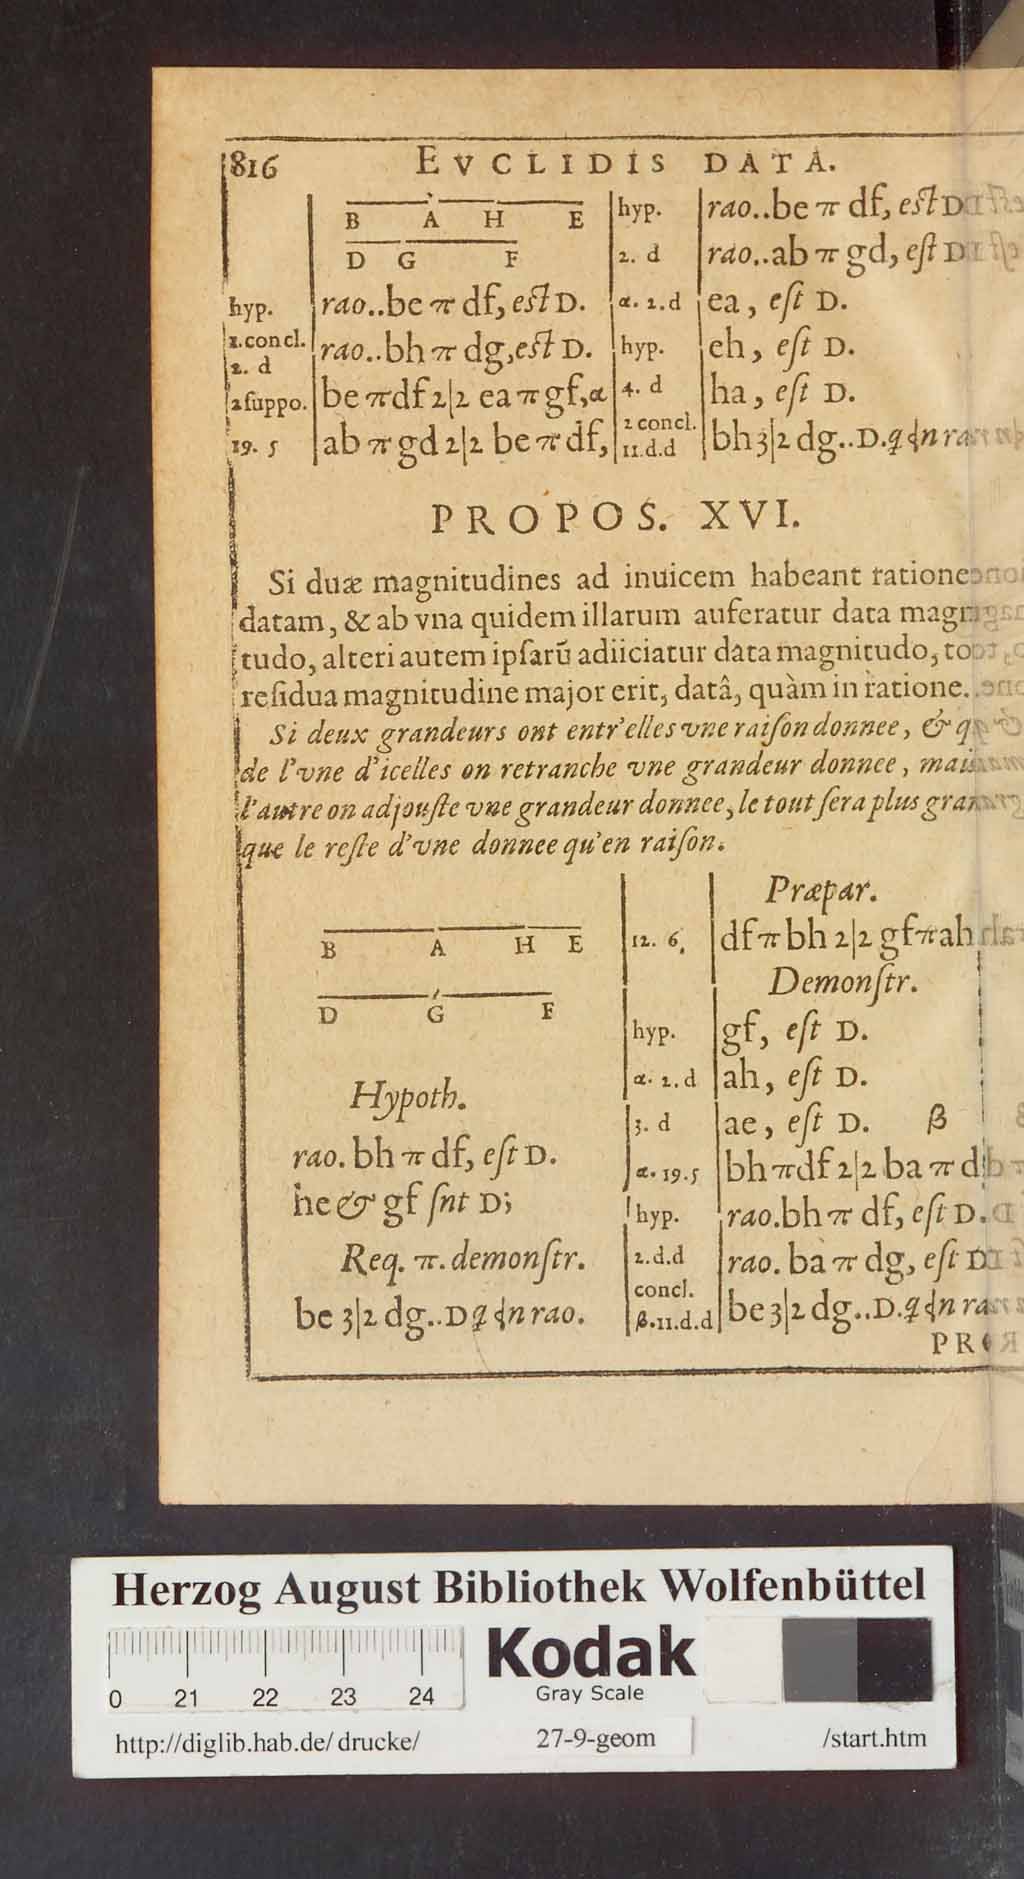 816 EVCLIDIS DATA.
B A H E
D G F
hyp. rao..be π df, est D.
1.concl. rao..bh π dg, est D.
2. d
2 suppo. be π df 2|2 ea π gf, α
19. 5 ab π gd 2|2 be π df,
hyp. rao..be π df, est D
2. d rao..ab π gd, est D
α. 2.d ea, est D.
hyp. eh, est D.
4. d ha, est D.
2 concl. bh 3|2 dg..D.
11.d.d
PROPOS. XVI.
Si duæ magnitudines ad inuicem habeant ratione
datam, & ab vna quidem illarum auferatur data magni
tudo, alteri autem ipsarū adiiciatur data magnitudo, to
residua magnitudine major erit, datâ, quàm in ratione.
Si deux grandeurs ont entr'elles vne raison donnee, & q
de l'vne d'icelles on retranche vne grandeur donnee, mais
l'autre on adjouste vne grandeur donnee, le tout sera plus gran
que le reste d'vne donnee qu'en raison.
B A H E
D G F
Hypoth.
rao. bh π df, est D.
he & gf snt D;
Req. π. demonstr.
be 3|2 dg..D rao.
Præpar.
12. 6. df π bh 2|2 gf π ah
Demonstr.
hyp. gf, est D.
α. 2.d ah, est D.
3. d ae, est D. β
α. 19.5 bh π df 2|2 ba π d
hyp. rao.bh π df, est D.
2.d.d rao. ba π dg, est D
concl.
β.11.d.d be 3|2 dg..D.
PRO
Herzog August Bibliothek Wolfenbüttel
0 21 22 23 24
Kodak
Gray Scale
http://diglib.hab.de/drucke/ 27-9-geom /start.htm